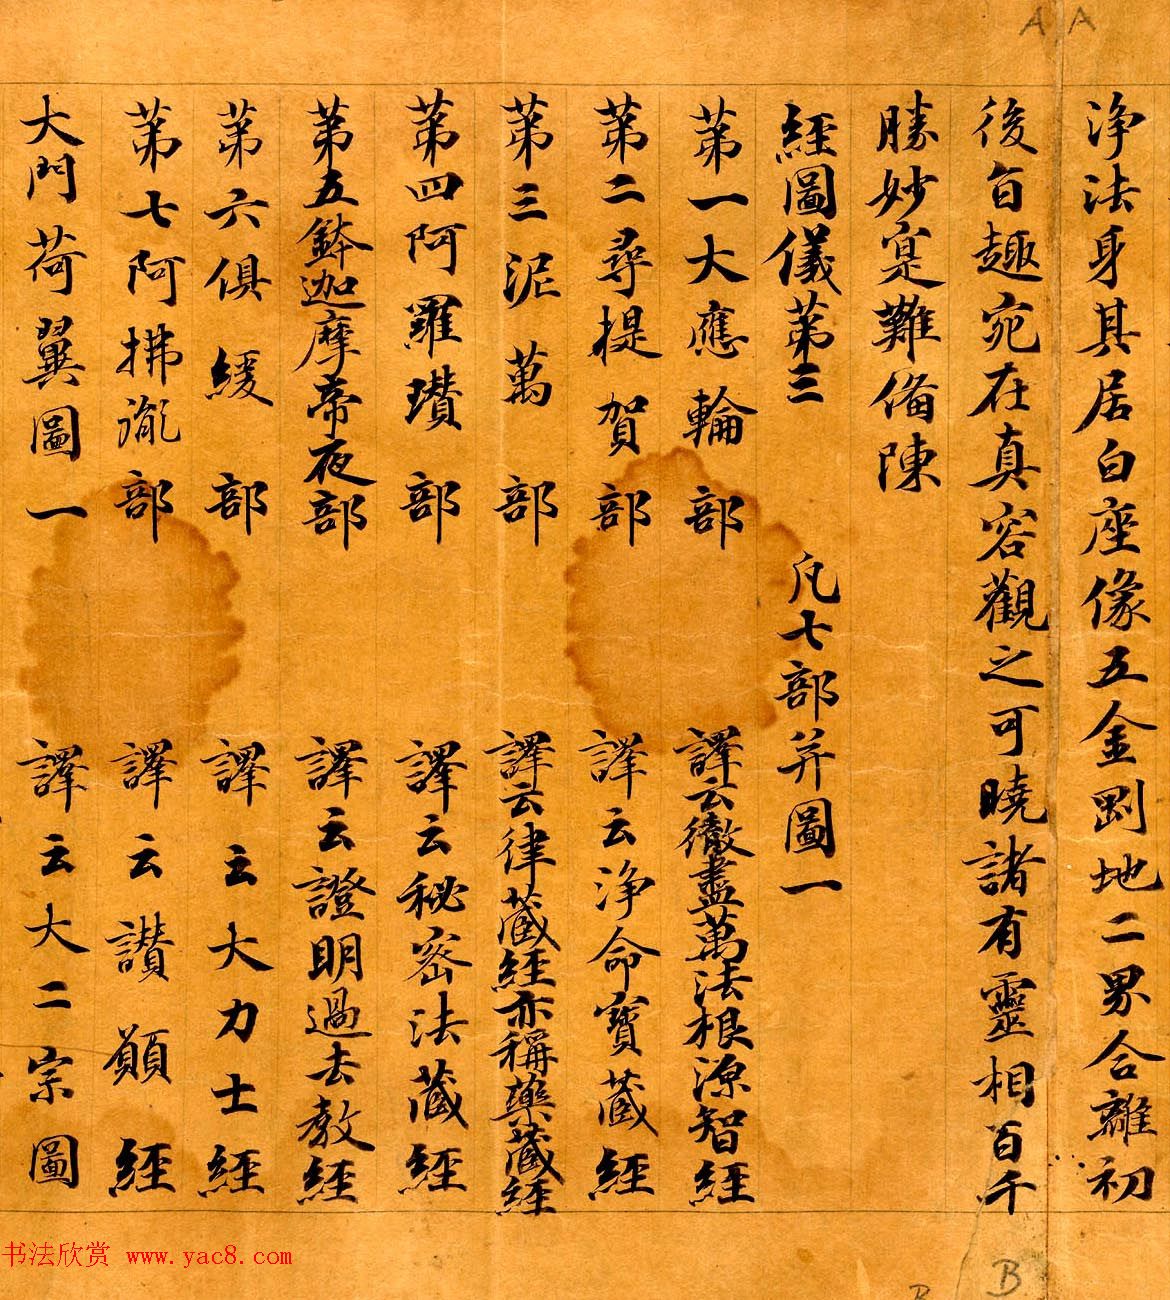 淨法身其居白座像五金剛地二界合離初
後旨趣宛在真容觀之可曉諸有靈相百千
勝妙寔難俻陳
經圖儀苐三 凡七部并圖一
苐一大應輪部 譯云徹盡萬法根源智經
苐二尋提賀部 譯云淨命寶藏經
苐三泥萬部 譯云律藏經亦稱藥藏經
苐四阿羅瓚部 譯云秘密法藏經
苐五鉢迦摩帝夜部 譯云證明過去教經
苐六俱緩部 譯云大力士經
苐七阿拂胤部 譯云讃願經
大門荷翼圖一 譯云大二宗圖
A A
B
B
书法欣赏 www.yac8.com